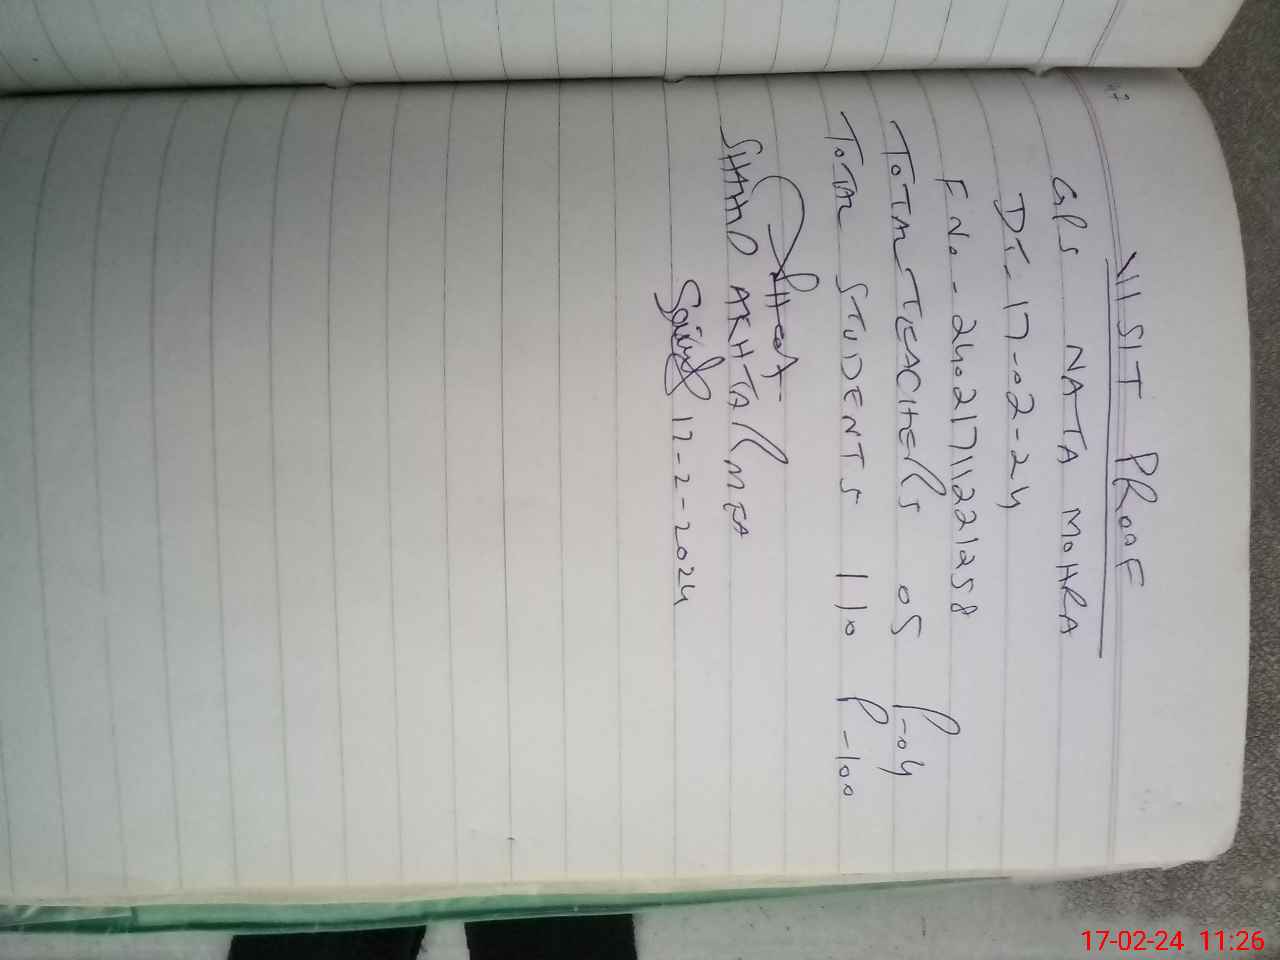 VISIT PROOF
GPS NATA MOHRA
DT-17-02-24
F No-2402171122 1258
TOTAL TEACHERS 05 P-04
TOTAL STUDENTS 110 P-100
SHAHID AKHTAR MEA
17-2-2024
17-02-24 11:26